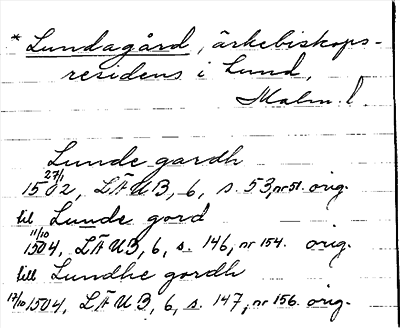 * Lundagård, ärkebiskops-
residens i Lund,
Malm. l.
Lunde gardh
27/1 1502, LÄUB, 6, s. 53, nr 51. orig.
till Lunde gord
11/10 1504, LÄUB, 6, s. 146, nr 154. orig.
till Lundhe gordh
17/10 1504, LÄUB, 6, s. 147, nr 156. orig.